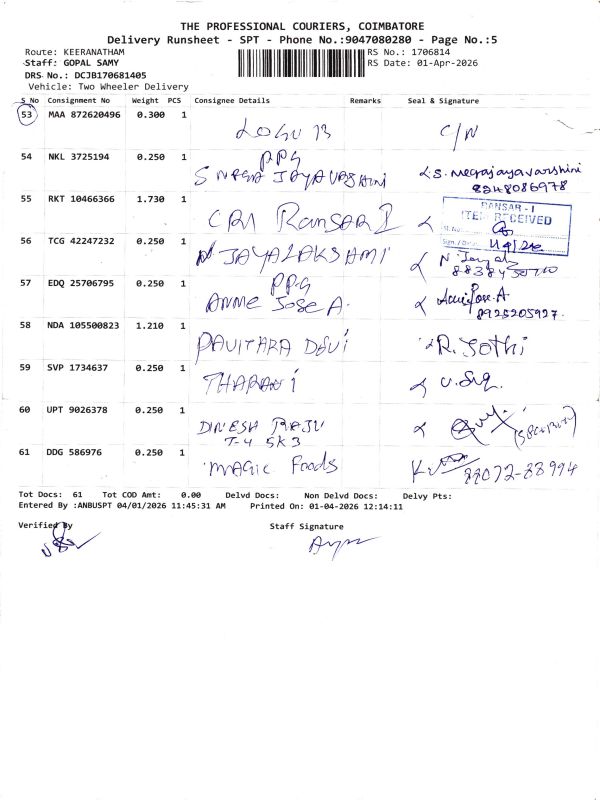 THE PROFESSIONAL COURIERS, COIMBATORE
Delivery Runsheet - SPT - Phone No.:9047080280 - Page No.:5
Route: KEERANATHAM RS No.: 1706814
Staff: GOPAL SAMY RS Date: 01-Apr-2026
DRS No.: DCJB170681405
Vehicle: Two Wheeler Delivery
S No Consignment No Weight PCS Consignee Details Remarks Seal & Signature
53 MAA 872620496 0.300 1
LOGU B C/N
54 NKL 3725194 0.250 1 PPG
S JAYAVARSHINI S. Megajayavarshini
8248086978
55 RKT 10466366 1.730 1 RANSAR - I
CRI Ransar I ITEM RECEIVED
56 TCG 42247232 0.250 1
N JAYALAKSHAMI N
57 EDQ 25706795 0.250 1 PPG
ANNE JOSE A. A
8925205927.
58 NDA 105500823 1.210 1
PAVITARA DEVI R. Jothi
59 SVP 1734637 0.250 1
THARANI
60 UPT 9026378 0.250 1
DINESH RAJU
T-4 5K3
61 DDG 586976 0.250 1
MAGIC Foods 88072-88994
Tot Docs: 61 Tot COD Amt: 0.00 Delvd Docs: Non Delvd Docs: Delvy Pts:
Entered By :ANBUSPT 04/01/2026 11:45:31 AM Printed On: 01-04-2026 12:14:11
Verified By Staff Signature